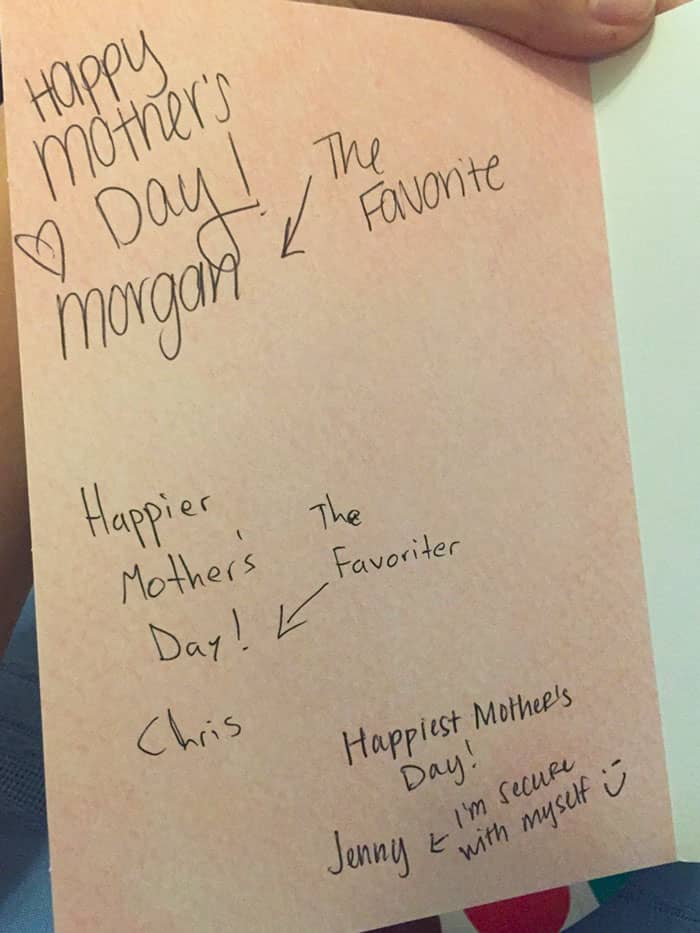 Happy
mother's
♡ Day!
morgan
The
Favorite
Happier
Mother's
Day!
Chris
The
Favoriter
Happiest Mother's
Day!
Jenny ← I'm secure
with myself :)